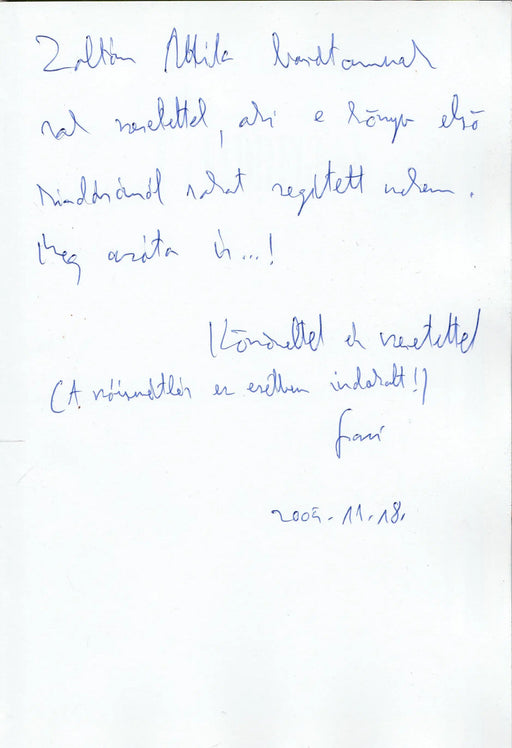 Zoltán Attila barátomnak
sok szeretettel, aki e könyv első
kiadásánál sokat segített nekem.
Meg azóta is...!
Köszönettel és szeretettel
(A szóismétlés ez esetben indokolt!)
11.18.